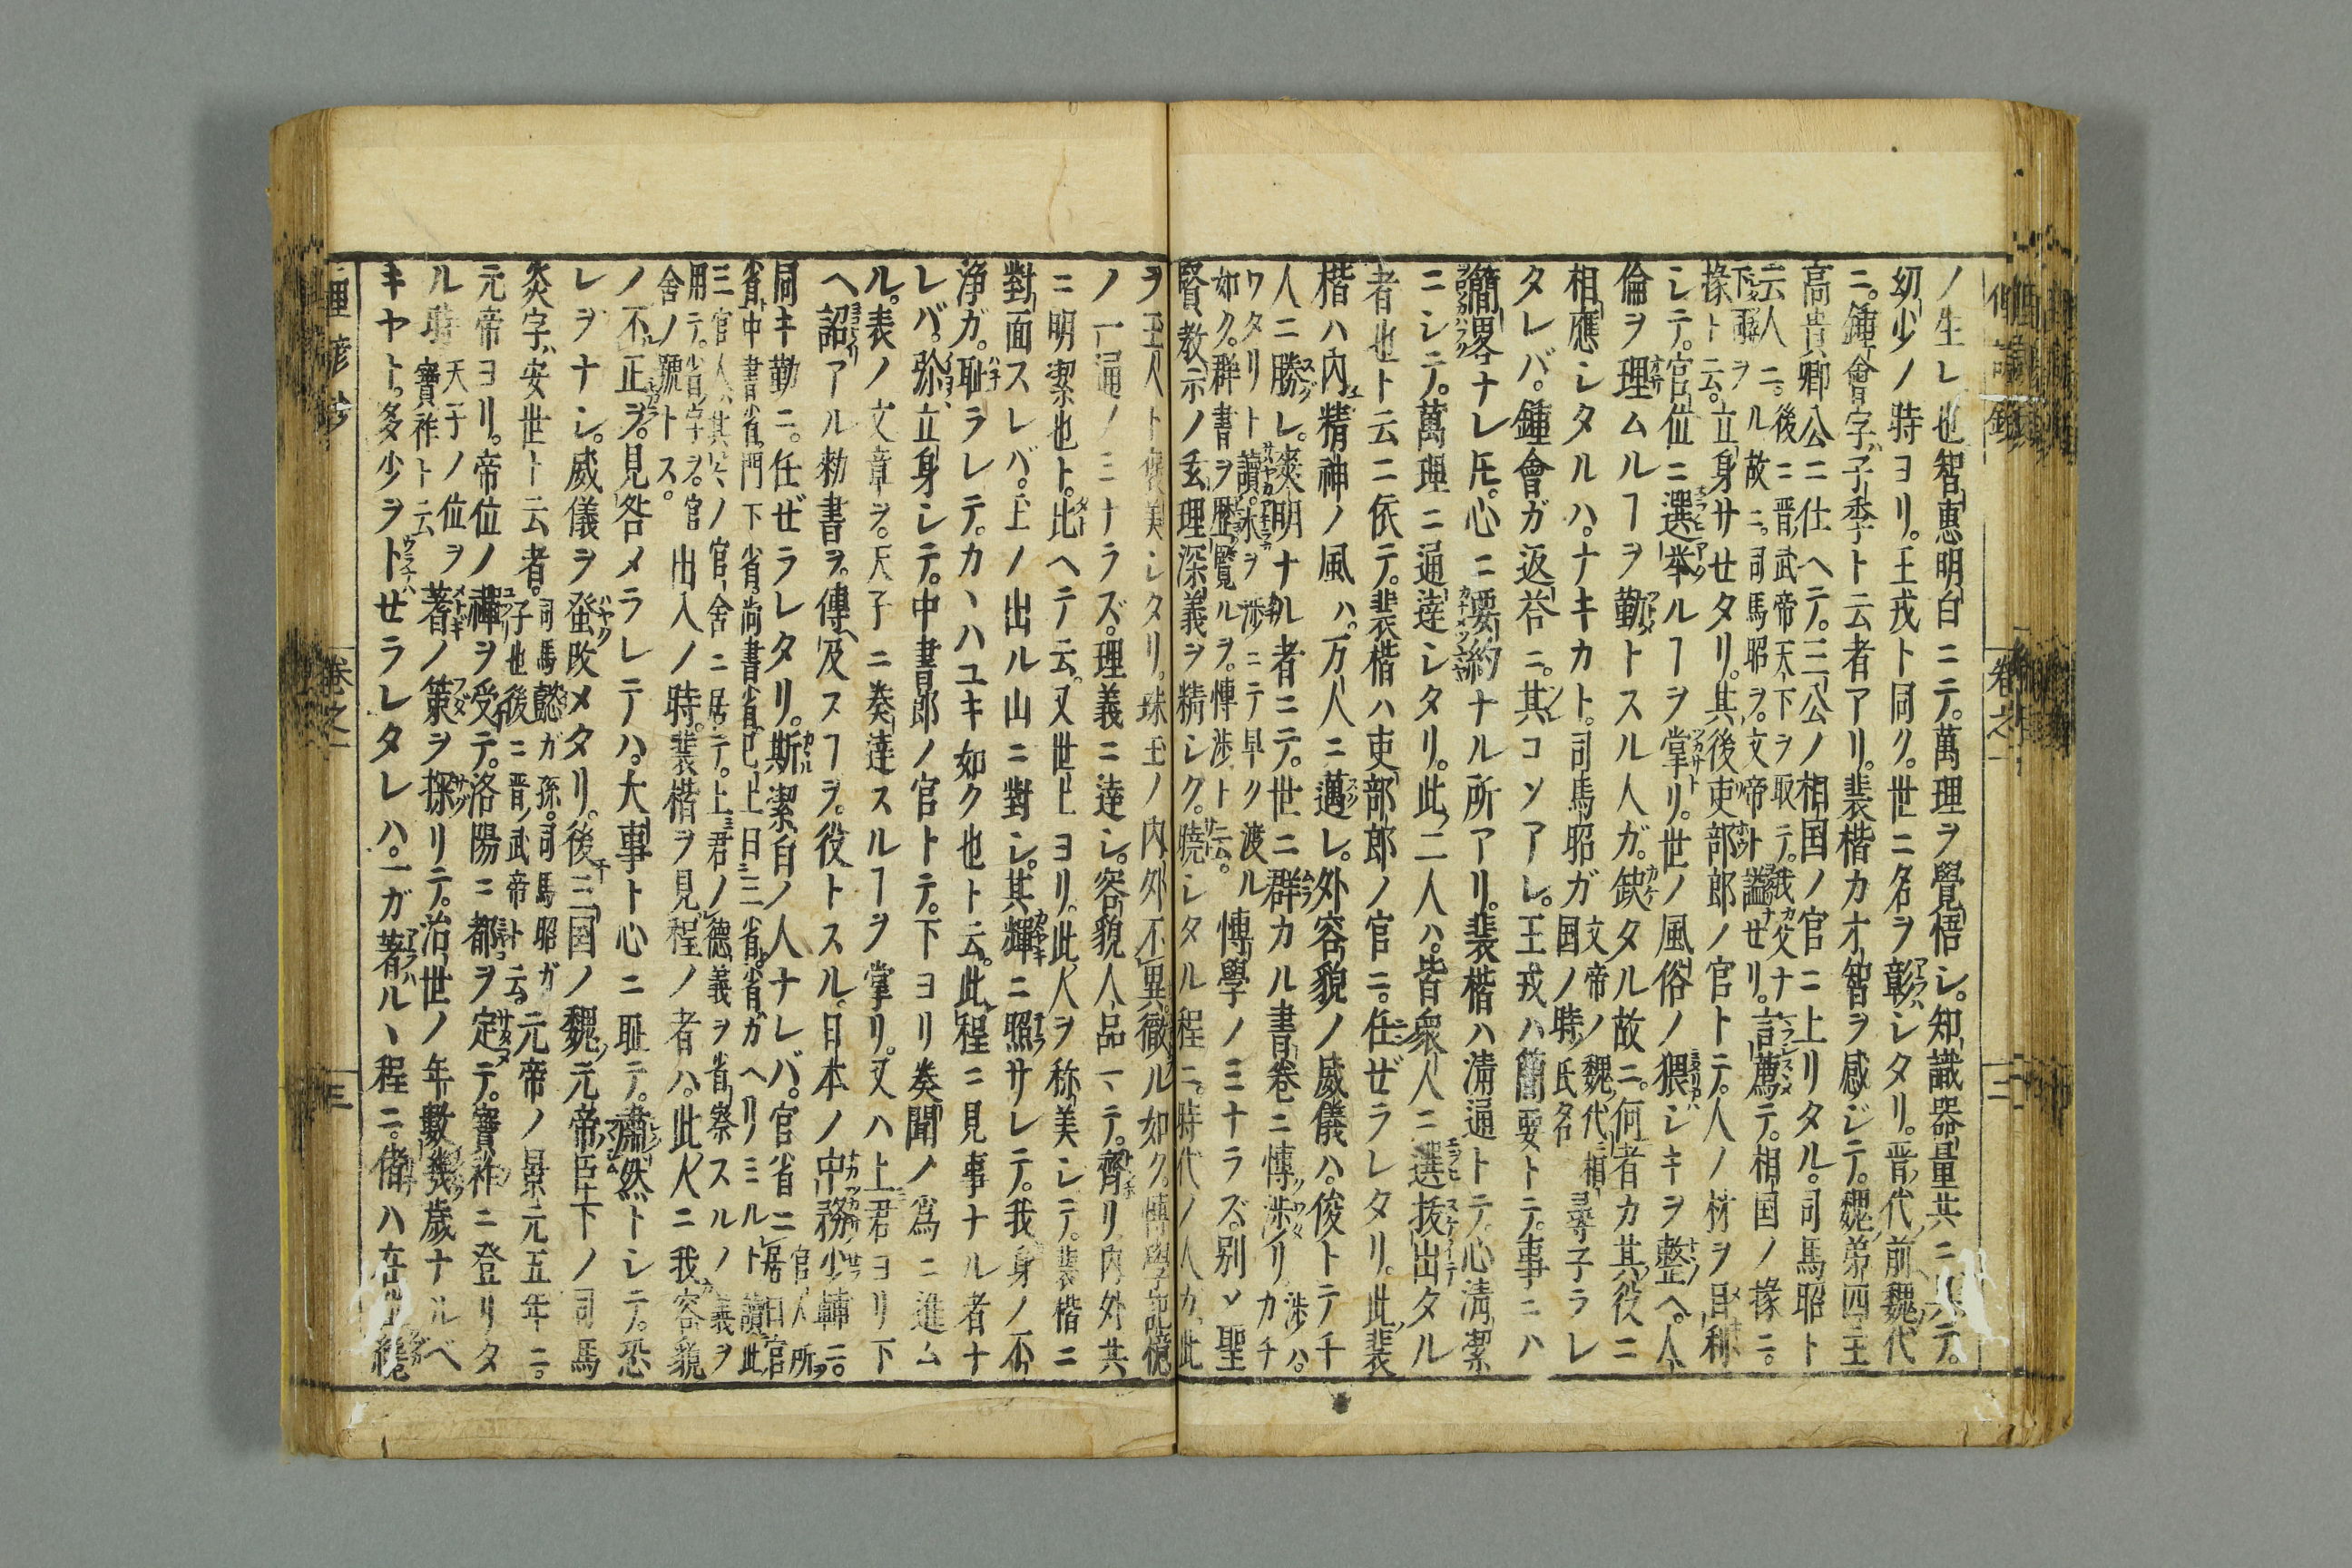 ノ生レ也智惠明白ニテ。萬理ヲ覺悟シ。知識器量共ニ
幼少ノ時ヨリ。王戎ト同ク。世ニ名ヲ彰シタリ。晋ノ代ノ前魏ノ代
ニ。鍾會字ハ子季ト云者アリ。裴楷カオ智ヲ感ジテ。魏ノ第四ノ主
高貴卿公ニ仕ヘテ。三公ノ相国ノ官ニ上リタル。司馬昭ト
云人ニ。後ニ晋ノ武帝天下ヲ取テ。我カ父ナ
ル故ニ。司馬昭ヲ。文帝ト謚セリ。言薦テ。相国ノ掾ニ。
掾ト云。立身サセタリ。其後吏部郎ノ官トテ。人ノ材ヲ目称
シテ。官位ニ選挙ルヿヲ掌リ。世ノ風俗ノ猥シキヲ整ヘ。人
倫ヲ理ムルヿヲ勤トスル人ガ。缺タル故ニ。何者カ其役ニ
相應シタルハ。ナキカト。司馬昭ガ文帝ノ魏ノ代ニ相国ノ時ノ氏名尋子ラレ
タレバ。鍾會ガ返荅ニ。其コソアレ。王戎ハ簡要トテ。事ニハ
簡畧ナレ𪜈。心ニ要約ナル所アリ。裴楷ハ淸通トテ。心淸潔
ニシテ。萬理ニ通達シタリ。此ノ二人ハ。皆衆人ニ選抜出タル
者也ト云ニ依テ。裴楷ハ吏部郎ノ官ニ。任ぜラレタリ。此ノ裴
楷ハ内精神ノ風ハ。万人ニ邁レ。外容貌ノ威儀ハ。俊トテ千
人ニ勝レ。爽明ナル者ニテ。世ニ群カル書卷ニ博渉リ
ワタリト讀。水ヲ渉ニテ早ク渡ル
如ク。群書ヲ歷覽ルヲ。博渉ト云。博學ノミナラズ。別〆聖
賢教示ノ玄理深義ヲ精シク。曉シタル程ニ。時代ノ人カ。此
ヲ玉人ト褒美シタリ。珠玉ノ内外不異。徹ル如ク。博學記憶
ノ一通ノミナラズ。理義ニ達シ。容貌人品一ヽテ。齊リ内外共
ニ明潔也ト。比ヘテ云。又世上ヨリ。此人ヲ称美シテ。裴楷ニ
對面スレバ。上ノ出ル山ニ對シ。其輝ニ照サレテ。我身ノ不
淨ガ。耻ラレテ。カヽハユキ如ク也ト云。此程ニ見事ナル者ナ
レバ。弥立身シテ。中書郎ノ官トテ。下ヨリ奏聞ノ爲ニ進ム
ル。表ノ文章ヲ。天子ニ奏達スルヿヲ掌リ。又ハ上君ヨリ下
ヘ詔アル勅書ヲ。傳及スヿヲ。役トスル。日本ノ中務少輔ニ。
同キ勤ニ。任ぜラレタリ。斯潔白ノ人ナレバ。官省ニ
省中書省。門下省。尚書省。已上曰三省。省カヘリミルト讀。此
三官人ハ其々ノ官舍ニ居テ。上君ノ德義ヲ省察スルノ義ヲ
用テ。省ノ字ヲ。官舍ノ號トス。出入ノ時。裴楷ヲ見程ノ者ハ。此人ニ我容貌
ノ不正ヲ。見咎メラレテハ。大事ト心ニ耻テ。肅然トシテ。恐
レヲナシ。威儀ヲ發改メタリ。後三国ノ魏ノ元帝ノ臣下ノ司馬
炎字ハ安世ト云者。司馬懿ガ孫。司馬昭ガ子也後ニ晋ノ武帝ト云。元帝ノ景元五年ニ。
元帝ヨリ。帝位ノ禪ヲ受テ。洛陽ニ都ヲ定テ。寶祚ニ登リタ
ル時天子ノ位ヲ寶祚ト云蓍ノ策ヲ探リテ。治世ノ年數幾歲ナルベ
キヤト。多少ヲトぜラレタレハ。一ガ著ルヽ程ニ。儲ハ
理諺抄
卷之一
三